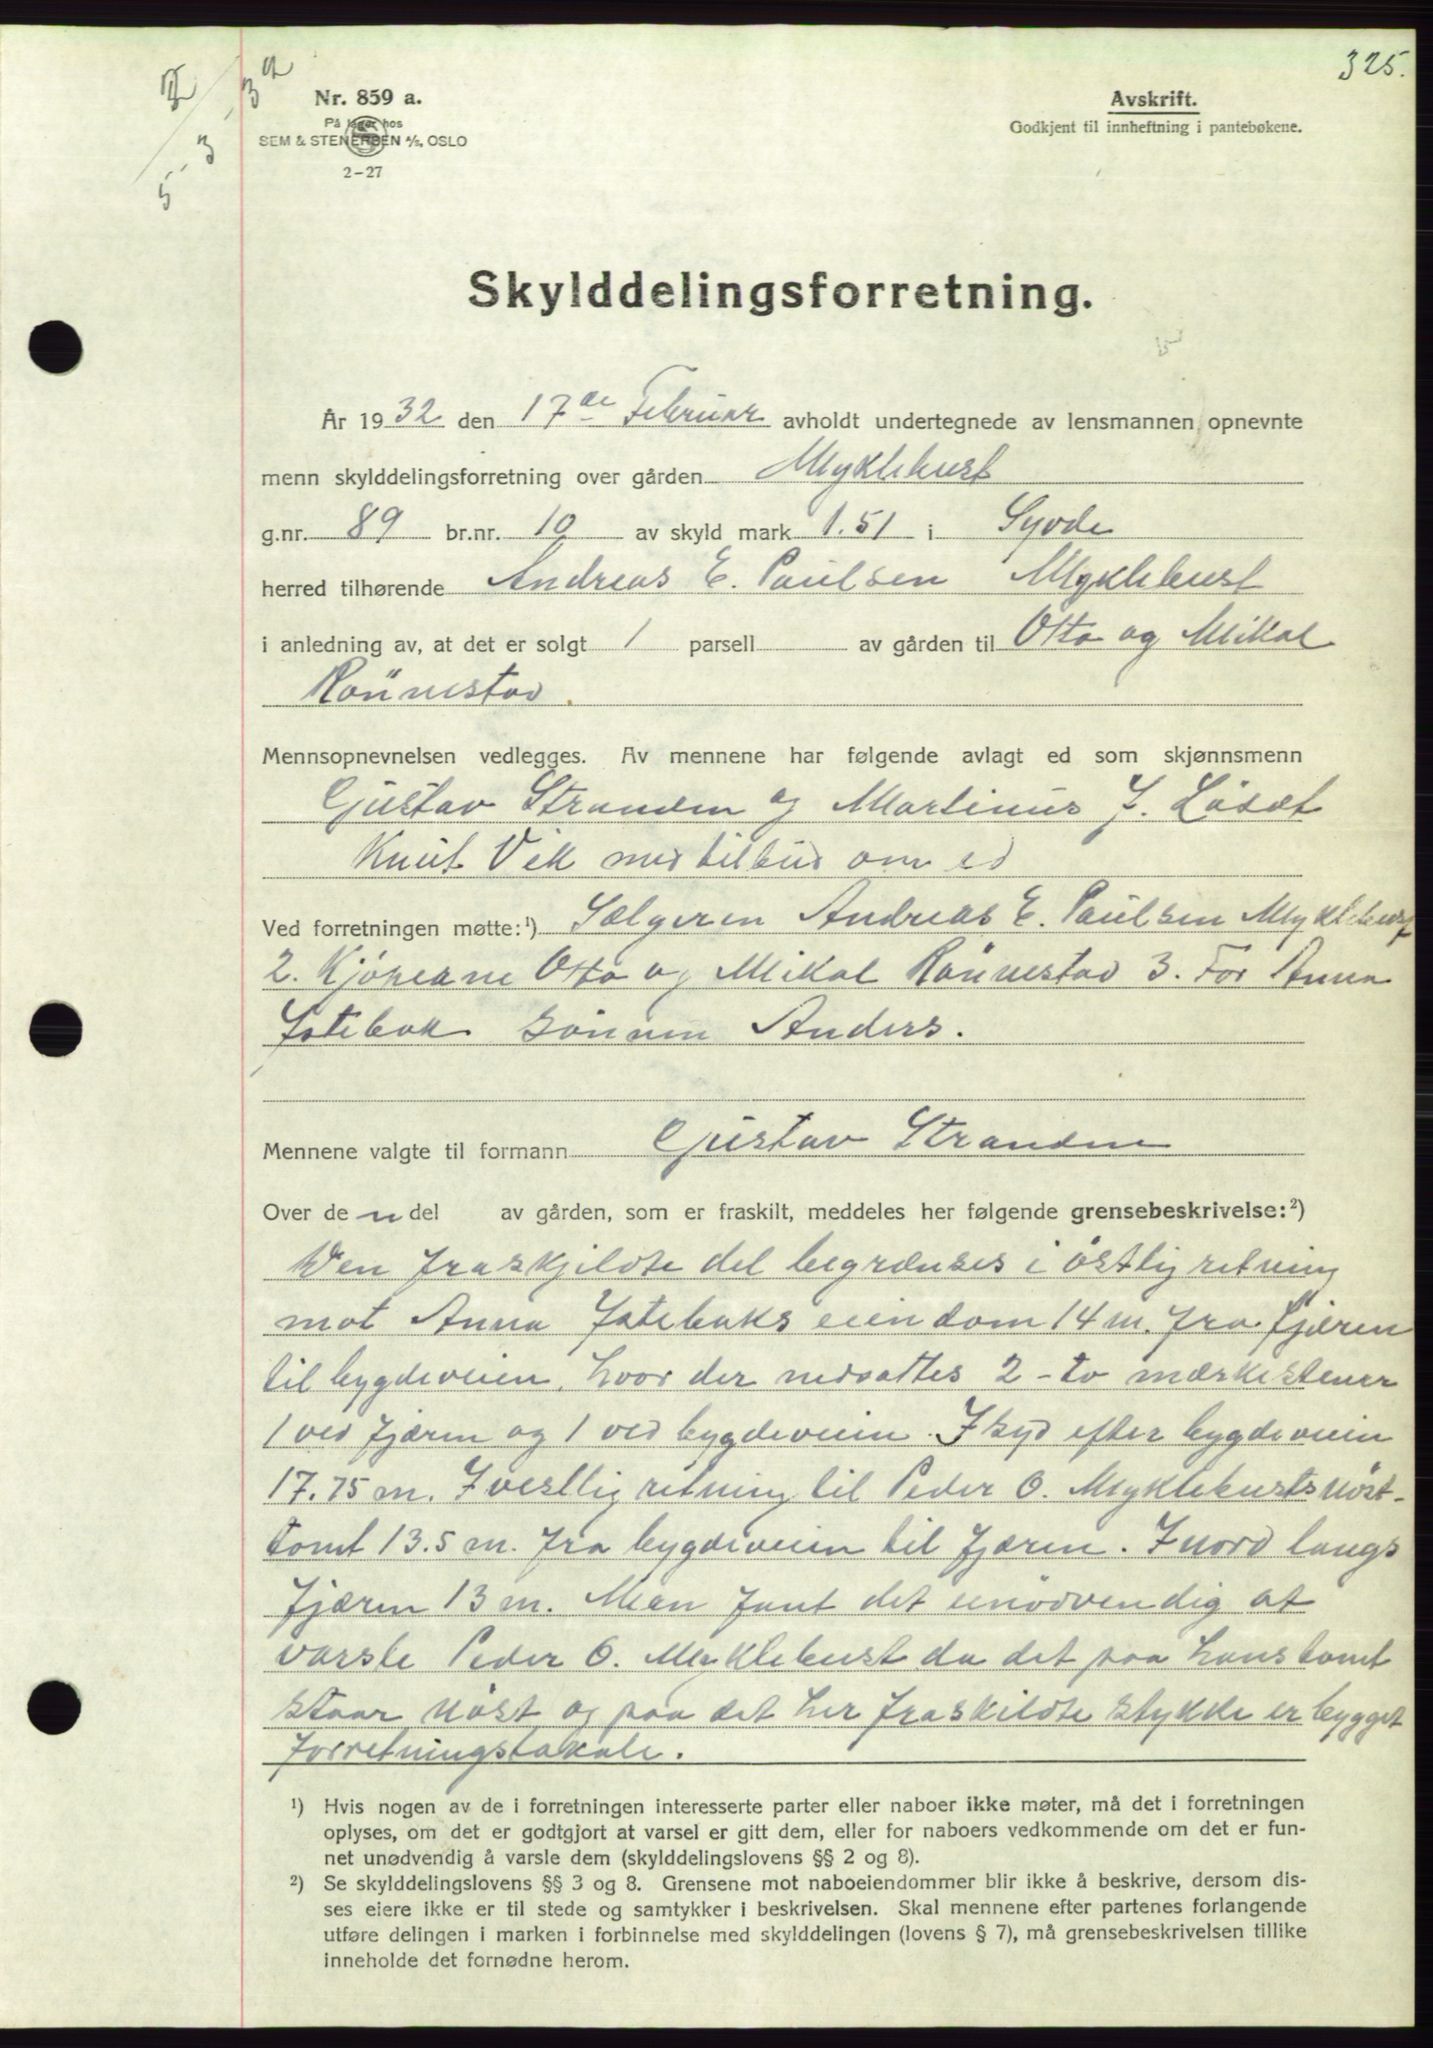 325.
Nr. 859 a.
På lager hos
SEM & STENERSEN A/S, OSLO
2-27
Avskrift.
Godkjent til innheftning i pantebøkene.
Skylddelingsforretning.
År 1932 den 17de Februar avholdt undertegnede av lensmannen opnevnte
menn skylddelingsforretning over gården Myklebust
g.nr. 89 br.nr. 10 av skyld mark 1.51 i Syvde
herred tilhørende Andreas E. Paulsen Myklebust
i anledning av, at det er solgt 1 parsell av gården til Otto og Mikal
Rönnestad.
Mennsopnevnelsen vedlegges. Av mennene har følgende avlagt ed som skjønnsmenn
Gustav Stranden og Martinus J. Løset
Knut Vik med tilbud om ed
Ved forretningen møtte:¹) Sælgeren Andreas E. Paulsen Myklebust
2. Kjöperne Otto og Mikal Rönnestad 3. For Anna
Jotebak sönnen Anders.
Mennene valgte til formann Gustav Stranden
Over de n del av gården, som er fraskilt, meddeles her følgende grensebeskrivelse:²)
Den fraskjildte del begrænses i östlig retning
mot Anna Jotebaks eiendom 14 m. fra fjæren
til bygdeveien, hvor der nedsattes 2 - to mærkestener
1 ved fjæren og 1 ved bygdeveien. I syd efter bygdeveien
17.75 m. I vestlig retning til Peder O. Myklebusts nöst-
tomt 13.5 m. fra bygdeveien til fjæren. I nord langs
fjæren 13 m. Man fant det unödvendig at
varsle Peder O. Myklebust da det paa hans tomt
staar nöst og paa det her fraskildte stykke er bygget
forretningslokale.
¹) Hvis nogen av de i forretningen interesserte parter eller naboer ikke møter, må det i forretningen
oplyses, om det er godtgjort at varsel er gitt dem, eller for naboers vedkommende om det er fun-
net unødvendig å varsle dem (skylddelingslovens §§ 2 og 8).
²) Se skylddelingslovens §§ 3 og 8. Grensene mot naboeiendommer blir ikke å beskrive, dersom dis-
ses eiere ikke er til stede og samtykker i beskrivelsen. Skal mennene efter partenes forlangende
utføre delingen i marken i forbinnelse med skylddelingen (lovens § 7), må grensebeskrivelsen tillike
inneholde det fornødne herom.